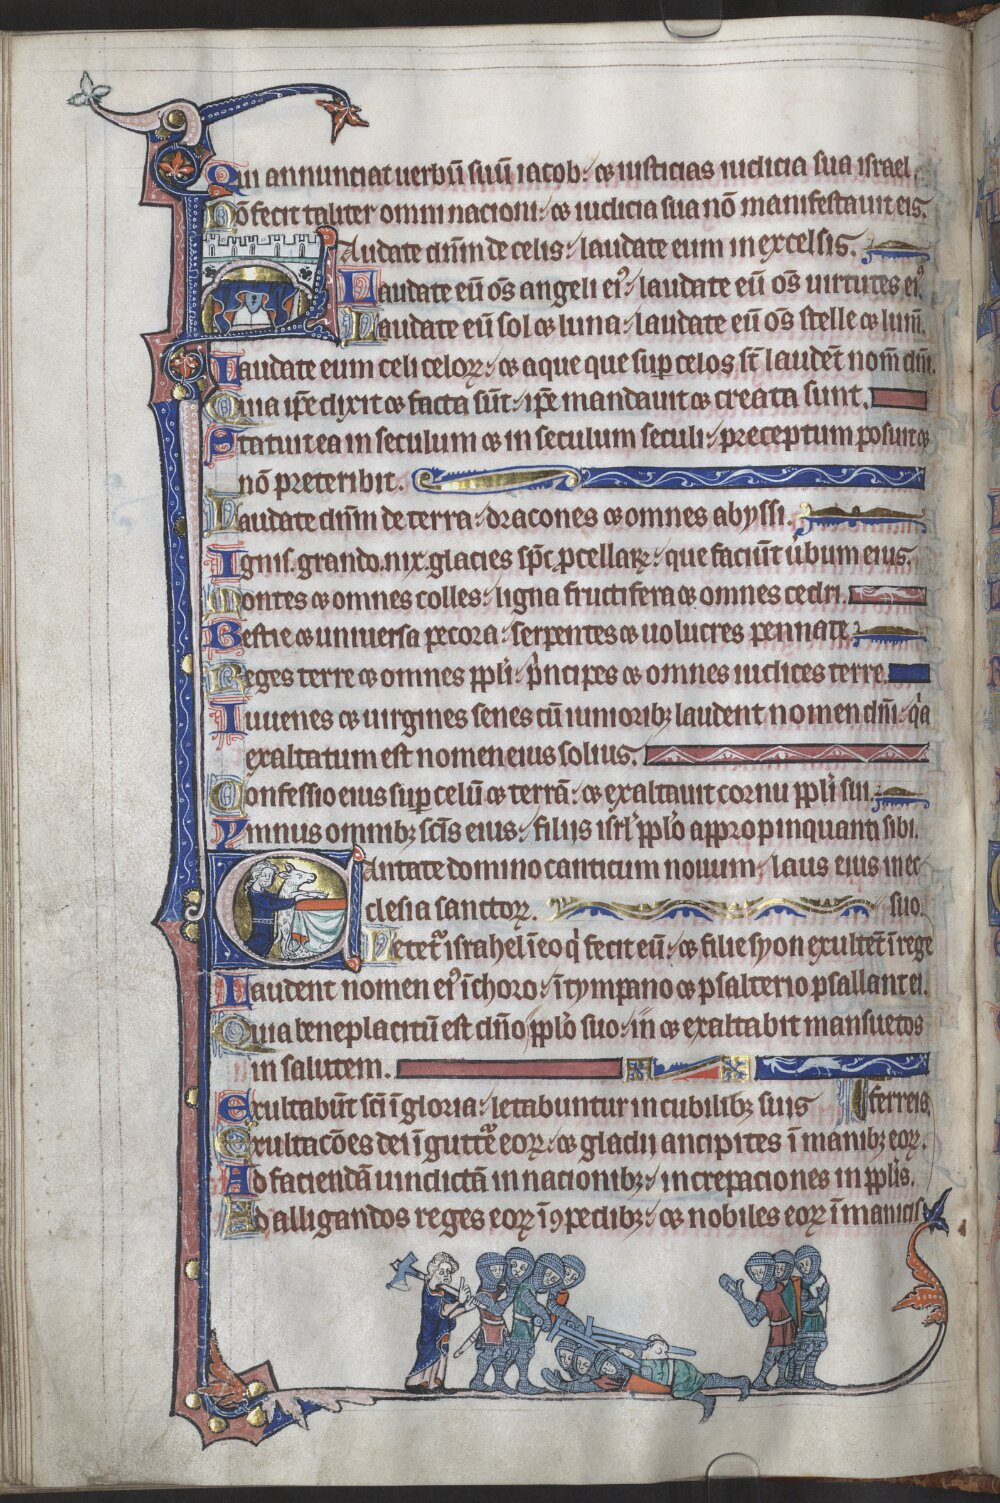 Qui annunciat uerbũ suũ iacob: ⁊ iusticias iudicia sua israel.
Nõ fecit taliter omni nacioni: ⁊ iudicia sua nõ manifestauit eis.
Laudate dñm de celis: laudate eum in excelsis.
Laudate eũ oẽs angeli eiꝰ: laudate eũ oẽs uirtutes eiꝰ.
Laudate eũ sol ⁊ luna: laudate eũ oẽs stelle ⁊ lum̃.
Laudate eum celi celoꝝ: ⁊ aque que suꝑ celos st̃ laudẽt nom̃ dñi.
Quia ip̃e dixit ⁊ facta sũt: ip̃e mandauit ⁊ creata sunt.
Statuit ea in seculum ⁊ in seculum seculi: preceptum posuit ⁊
nõ preteribit.
Laudate dñm de terra: dracones ⁊ omnes abyssi.
Ignis. grando. nix. glacies sp̃c ꝓcellaꝝ: que faciũt ũbum eius.
Montes ⁊ omnes colles: ligna fructifera ⁊ omnes cedri.
Bestie ⁊ uniuersa pecora: serpentes ⁊ uolucres pennate.
Reges terre ⁊ omnes pp̃li: p̃ncipes ⁊ omnes iudices terre.
Iuuenes ⁊ uirgines senes cũ iuniorib; laudent nomen dñi: q̃a
exaltatum est nomen eius solius.
Confessio eius suꝑ celũ ⁊ terrã: ⁊ exaltauit cornu pp̃li sui.
Ymnus omnib; sc̃is eius: filijs isrl̃ pp̃lo appropinquanti sibi.
Cantate domino canticum nouum: laus eius in ec
clesia sanctoꝝ. suo.
Letet᷑ israhel ĩ eo q̃ fecit eũ: ⁊ filie syon exultẽt ĩ rege
Laudent nomen eiꝰ ĩ choro: ĩ tympano ⁊ psalterio psallant ei.
Quia beneplacitũ est dño pp̃lo suo: ⁊ exaltabit mansuetos
in salutem.
Exultabũt sc̃i ĩ gloria: letabuntur in cubilib; suis ferreis.
Exultacões dei ĩ guttẽ eoꝝ: ⁊ gladii ancipites ĩ manib; eoꝝ.
Ad faciendã uindictã in nacionib;: increpaciones in pp̃lis.
Ad alligandos reges eoꝝ ĩ ꝯpedib;: ⁊ nobiles eoꝝ ĩ manicis